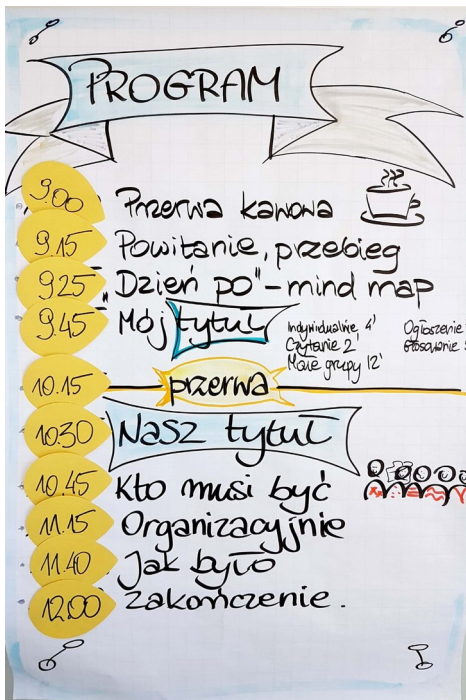 PROGRAM
9.00 Przerwa kawowa
9.15 Powitanie, przebieg
925 "Dzień po" - mind map
9.45 Mój tytuł
Indywidualnie 4'
Czytanie 2'
Małe grupy 12'
Ogłoszenie
10.15 przerwa
10.30 Nasz tytuł
10.45 Kto musi być
11.15 Organizacyjnie
11.40 Jak było
12.00 zakończenie.